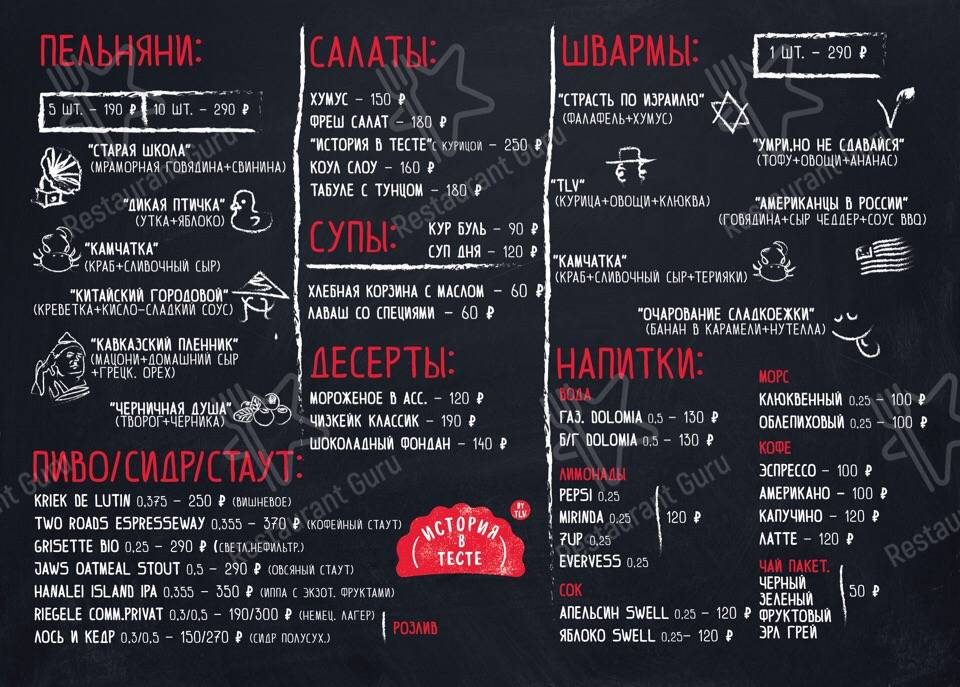 ПЕЛЬНЯНИ:
5 ШТ. – 190 ₽
10 ШТ. – 290 ₽
"СТАРАЯ ШКОЛА"
(МРАМОРНАЯ ГОВЯДИНА+СВИНИНА)
"ДИКАЯ ПТИЧКА"
(УТКА+ЯБЛОКО)
"КАМЧАТКА"
(КРАБ+СЛИВОЧНЫЙ СЫР)
"КИТАЙСКИЙ ГОРОДОВОЙ"
(КРЕВЕТКА+КИСЛО-СЛАДКИЙ СОУС)
"КАВКАЗСКИЙ ПЛЕННИК"
(МАЦОНИ+ДОМАШНИЙ СЫР
+ГРЕЦК. ОРЕХ)
"ЧЕРНИЧНАЯ ДУША"
(ТВОРОГ+ЧЕРНИКА)
ПИВО/СИДР/СТАУТ:
KRIEK DE LUTIN 0,375 – 250 ₽ (ВИШНЕВОЕ)
TWO ROADS ESPRESSEWAY 0,355 – 370 ₽ (КОФЕЙНЫЙ СТАУТ)
GRISETTE BIO 0.25 – 290 ₽ (СВЕТЛ.НЕФИЛЬТР.)
JAWS OATMEAL STOUT 0,5 – 290 ₽ (ОВСЯНЫЙ СТАУТ)
HANALEI ISLAND IPA 0,355 – 350 ₽ (ИППА С ЭКЗОТ. ФРУКТАМИ)
RIEGELE COMM.PRIVAT 0,3/0,5 – 190/300 ₽ (НЕМЕЦ. ЛАГЕР)
ЛОСЬ И КЕДР 0,3/0,5 – 150/270 ₽ (СИДР ПОЛУСУХ.)
РОЗЛИВ
САЛАТЫ:
ХУМУС – 150 ₽
ФРЕШ САЛАТ – 180 ₽
"ИСТОРИЯ В ТЕСТЕ"С КУРИЦОЙ – 250 ₽
КОУЛ СЛОУ – 160 ₽
ТАБУЛЕ С ТУНЦОМ – 180 ₽
СУПЫ:
КУР БУЛЬ – 90 ₽
СУП ДНЯ – 120 ₽
ХЛЕБНАЯ КОРЗИНА С МАСЛОМ – 60 ₽
ЛАВАШ СО СПЕЦИЯМИ – 60 ₽
ДЕСЕРТЫ:
МОРОЖЕНОЕ В АСС. – 120 ₽
ЧИЗКЕЙК КЛАССИК – 190 ₽
ШОКОЛАДНЫЙ ФОНДАН – 140 ₽
ИСТОРИЯ
В
ТЕСТЕ
BY
TLV
ШВАРМЫ:
1 ШТ. – 290 ₽
"СТРАСТЬ ПО ИЗРАИЛЮ"
(ФАЛАФЕЛЬ+ХУМУС)
"УМРИ,НО НЕ СДАВАЙСЯ"
(ТОФУ+ОВОЩИ+АНАНАС)
"TLV"
(КУРИЦА+ОВОЩИ+КЛЮКВА)
"АМЕРИКАНЦЫ В РОССИИ"
(ГОВЯДИНА+СЫР ЧЕДДЕР+СОУС BBQ)
"КАМЧАТКА"
(КРАБ+СЛИВОЧНЫЙ СЫР+ТЕРИЯКИ)
"ОЧАРОВАНИЕ СЛАДКОЕЖКИ"
(БАНАН В КАРАМЕЛИ+НУТЕЛЛА)
НАПИТКИ:
ВОДА
ГАЗ. DOLOMIA 0,5 – 130 ₽
Б/Г DOLOMIA 0.5 – 130 ₽
ЛИМОНАДЫ
PEPSI 0.25
MIRINDA 0.25
7UP 0,25
EVERVESS 0.25
120 ₽
СОК
АПЕЛЬСИН SWELL 0.25 – 120 ₽
ЯБЛОКО SWELL 0.25– 120 ₽
МОРС
КЛЮКВЕННЫЙ 0.25 – 100 ₽
ОБЛЕПИХОВЫЙ 0.25 – 100 ₽
КОФЕ
ЭСПРЕССО – 100 ₽
АМЕРИКАНО – 100 ₽
КАПУЧИНО – 120 ₽
ЛАТТЕ – 120 ₽
ЧАЙ ПАКЕТ.
ЧЕРНЫЙ
ЗЕЛЕНЫЙ
ФРУКТОВЫЙ
ЭРЛ ГРЕЙ
50 ₽
Restaurant Guru
Restaurant Guru
Restaurant Guru
Restaurant Guru
Restaurant Guru
Restaurant Guru